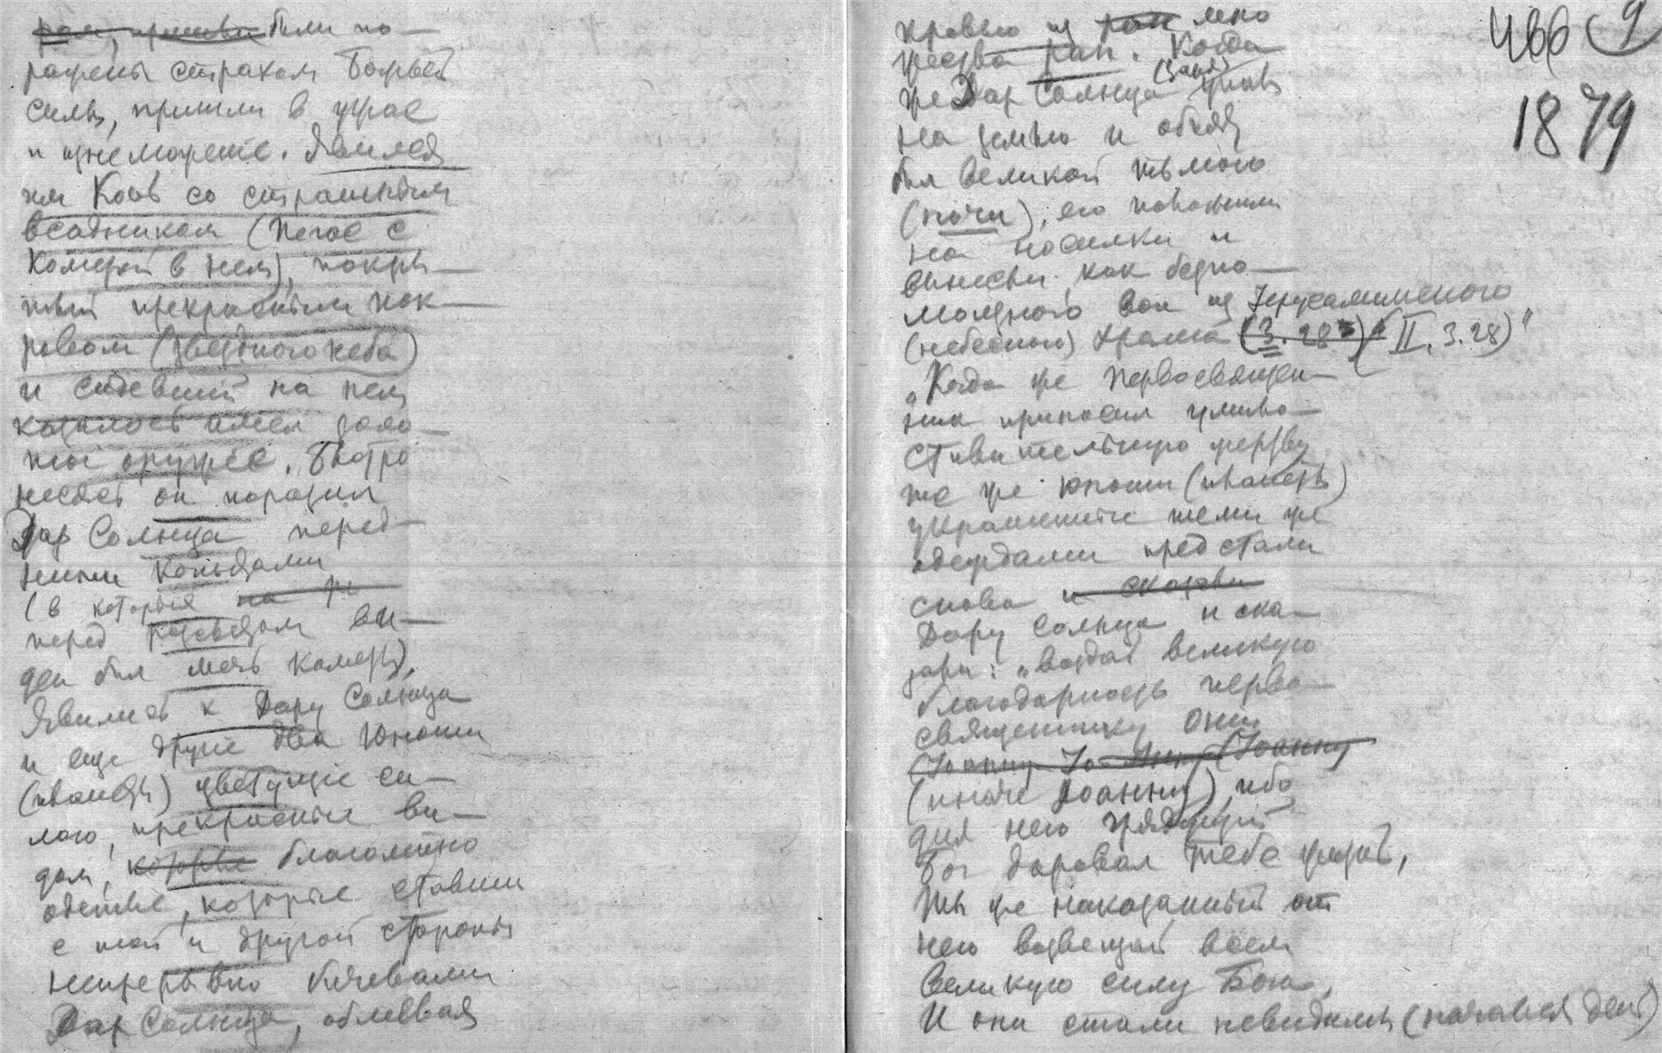 были по-
ражены страхом Божьей
силы, пришли в ужас
и изнеможение. Явился
им Конь со страшным
всадником (Пегас с
Кометой в нем), покры-
тый прекрасным пок-
ровом (звездного неба)
и сидевший на нем,
казалось имел золо-
тое оружие. Быстро
несясь он поразил
Дар Солнца перед-
ними копытами
(в которых
перед разъездом ви-
ден был меч Кометы).
Явились к Дару Солнца
и еще другие два Юноши
цветущие си-
лою, прекрасные ви-
дом, благолепно
одетые, которые ставши
с той и другой стороны
непрерывно бичевали
Дар Солнца, обливая
кровью из мно
жества ран. Когда
же Дар Солнца упав
на землю и объят
был великой тьмою
(ночи), его положили
на носилки и
вынесли, как безпо-
мощного вон из Іерусалимского
(небесного) храма (II, 3.28)"
„Когда же Первосвящен-
ник приносил умило-
стивительную жертву
те же юноши
украшенные теми же
одеждами предстали
снова
Дару Солнца и ска-
зали: „воздай великую
благодарность перво-
священнику Онии
(иначе Іоанну), ибо
для него грядущий
Бог даровал тебе жизнь,
Ты же наказанный от
него возвещай всем
великую силу Бога,
И они стали невидимы (начался день)
466 9
1879